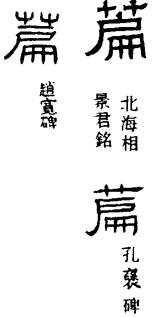 篇
北海相
景君銘
篇
孔褒碑
篇
趙寬碑